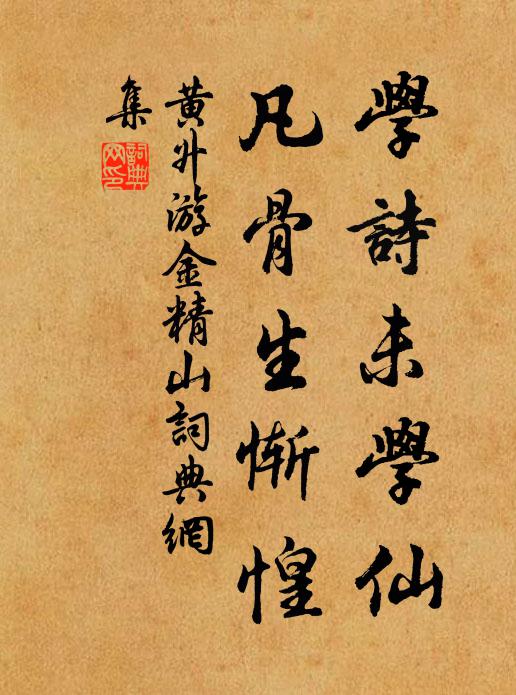 學詩未學仙
凡骨生惭惶
黄升游金精山詞典網
集
詞典网印